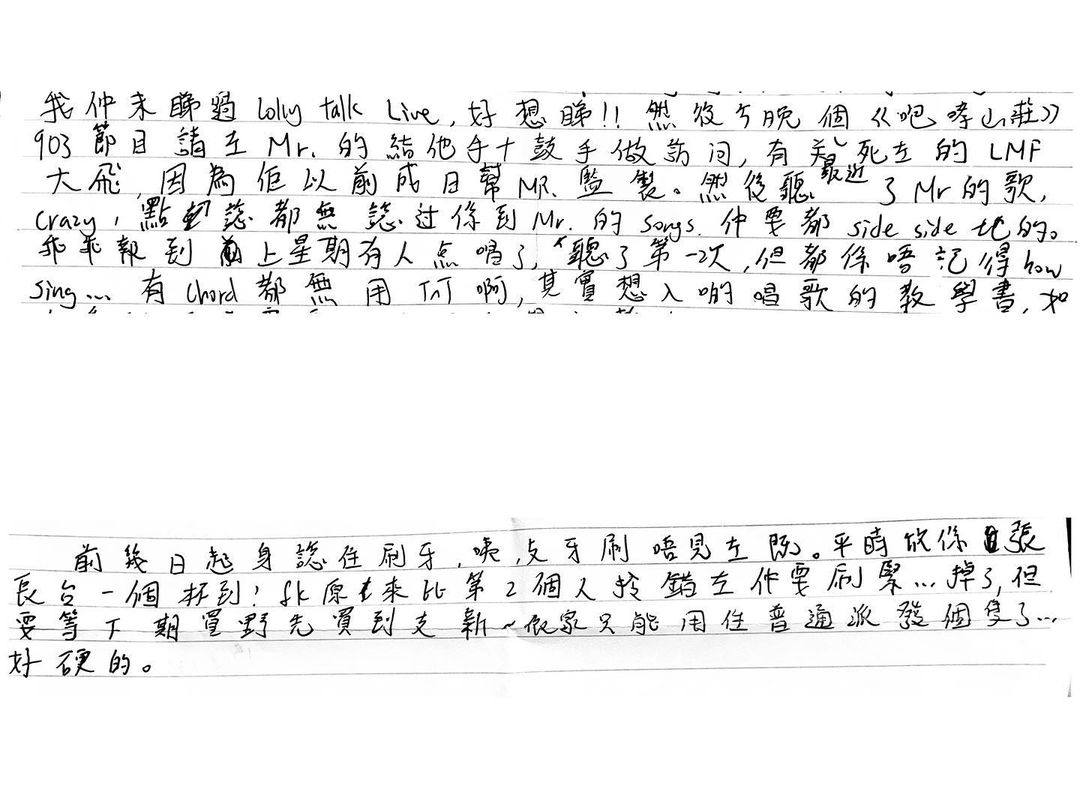 我仲未睇過 Lolly talk Live, 好想睇!! 然後今晚個《吧嗱山莊》
903 節目請左 Mr. 的結他手+鼓手做訪问, 有关死左的 LMF
大飛, 因為佢以前成日幫 MR. 監製。然後聽最近了 Mr 的歌,
Crazy, 點認都無認过係到 Mr. 的 songs. 仲要都 side side 地的。
乖乖報到上星期有人点唱了, 聽了第一次, 但都係唔記得 how
sing... 有 Chord 都無用 TT 啊, 其實想入啲唱歌的教學書, 如
前幾日起身諗住刷牙, 咦, 支牙刷唔見左既。平時放係張
長台一個杯到! fk 原來比第2個人拎錯左仲要刷緊... 掉了, 但
要等下期買野先買到支新~依家只能用住普通派發個隻了...
好硬的。